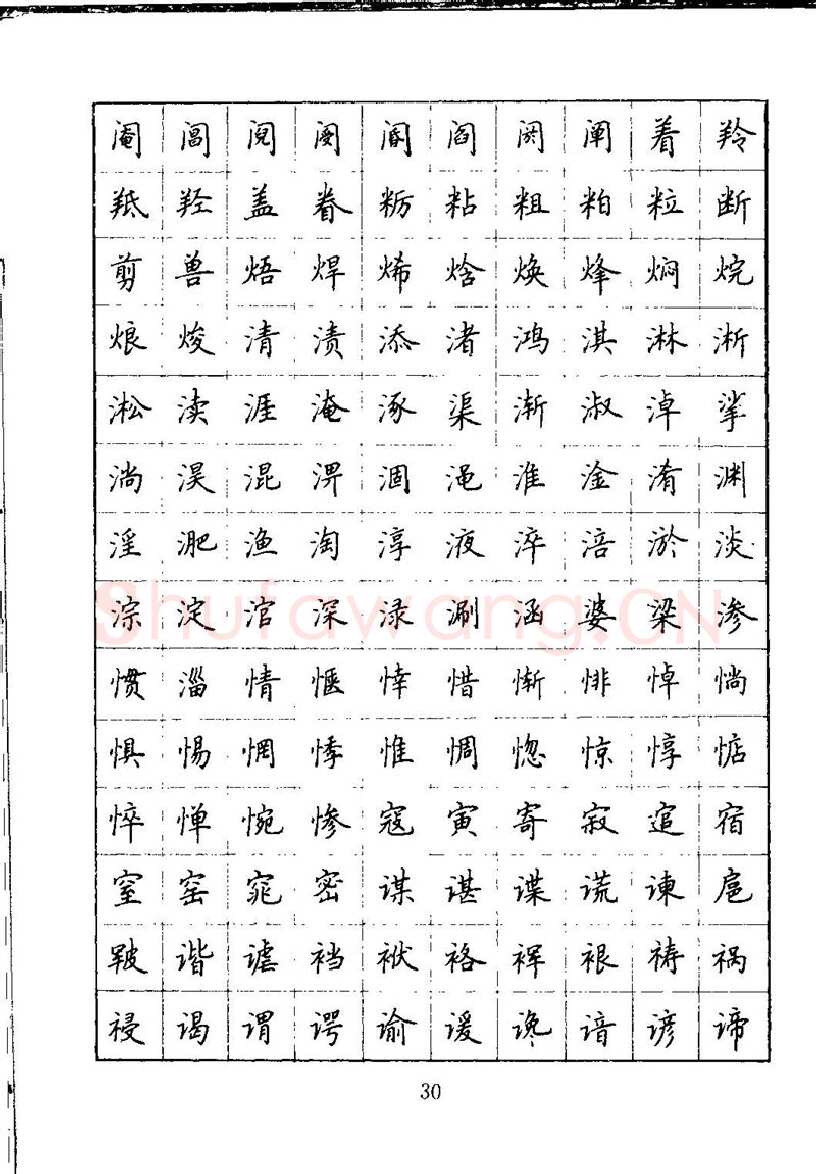 阉 阊 阋 阌 阍 阎 阏 阐 着 羚
羝 羟 盖 眷 粝 粘 粗 粕 粒 断
剪 兽 焐 焊 烯 焓 焕 烽 焖 烷
烺 焌 清 渍 添 渚 鸿 淇 淋 淅
淞 渎 涯 淹 涿 渠 渐 淑 淖 挲
淌 淏 混 淠 涸 渑 淮 淦 淆 渊
淫 淝 渔 淘 淳 液 淬 涪 淤 淡
淙 淀 涫 深 渌 涮 涵 婆 梁 渗
惯 淄 情 惬 悻 惜 惭 悱 悼 惝
惧 惕 惘 悸 惟 惆 惚 惊 惇 惦
悴 惮 惋 惨 寇 寅 寄 寂 逭 宿
窒 窑 窕 密 谋 谌 谍 谎 谏 扈
皲 谐 谑 裆 袱 袼 裈 裉 祷 祸
祲 谒 谓 谔 谕 谖 谗 谙 谚 谛
30
Shufawang.CN